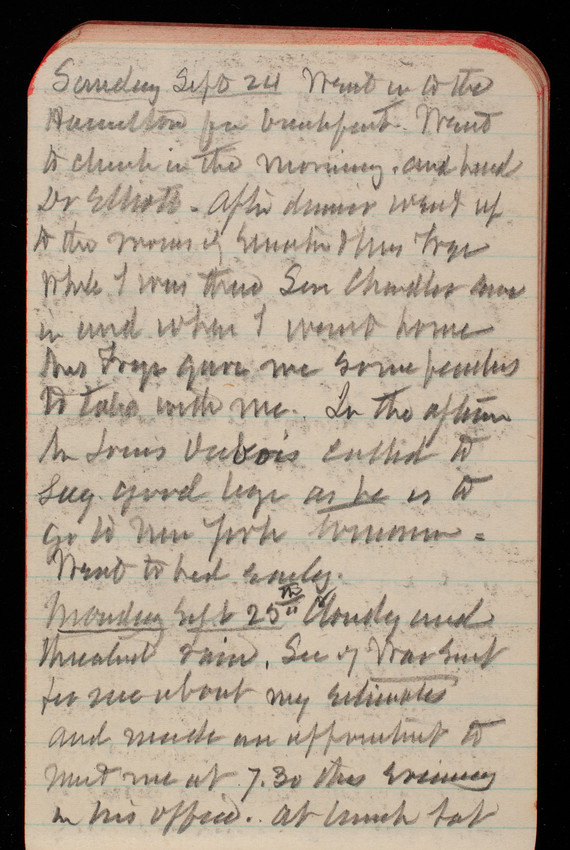 Sunday Sept 24 Went in to the
Hamilton for breakfast. Went
to church in the morning. and heard
Dr Elliott. After dinner went up
to the rooms of Senator & Mrs Frye
While I was there Sen Chandler came
in and when I went home
Mrs Frye gave me some peaches
to take with me. In the aftern
Mr Louis Dubois called to
say good bye as he is to
go to New York tomorrow.
Went to bed early.
Monday Sept 25th Cloudy and
threatened rain. Sec of War sent
for me about my estimates
and made an appointment to
meet me at 7.30 this evening
in his office. at lunch sat